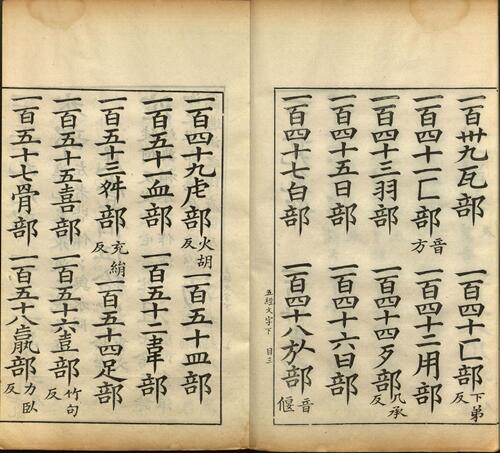 一百卅九瓦部 一百四十匸部下弟反
一百四十一匚部音方 一百四十二用部
一百四十三羽部 一百四十四歹部几承反
一百四十五日部 一百四十六曰部
一百四十七白部 一百四十八㫃部音偃
五經文字下 目三
一百四十九虍部火胡反 一百五十皿部
一百五十一血部 一百五十二韋部
一百五十三舛部充絹反 一百五十四足部
一百五十五喜部 一百五十六壴部竹句反
一百五十七骨部 一百五十八部力臥反